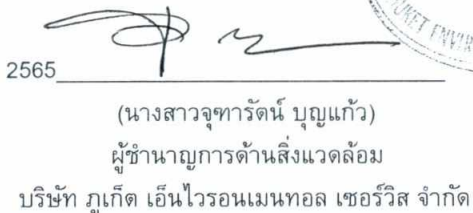 UKET ENVIR
2565
(นางสาวจุฑารัตน์ บุญแก้ว)
ผู้ชำนาญการด้านสิ่งแวดล้อม
บริษัท ภูเก็ต เอ็นไวรอนเมนทอล เซอร์วิส จำกัด